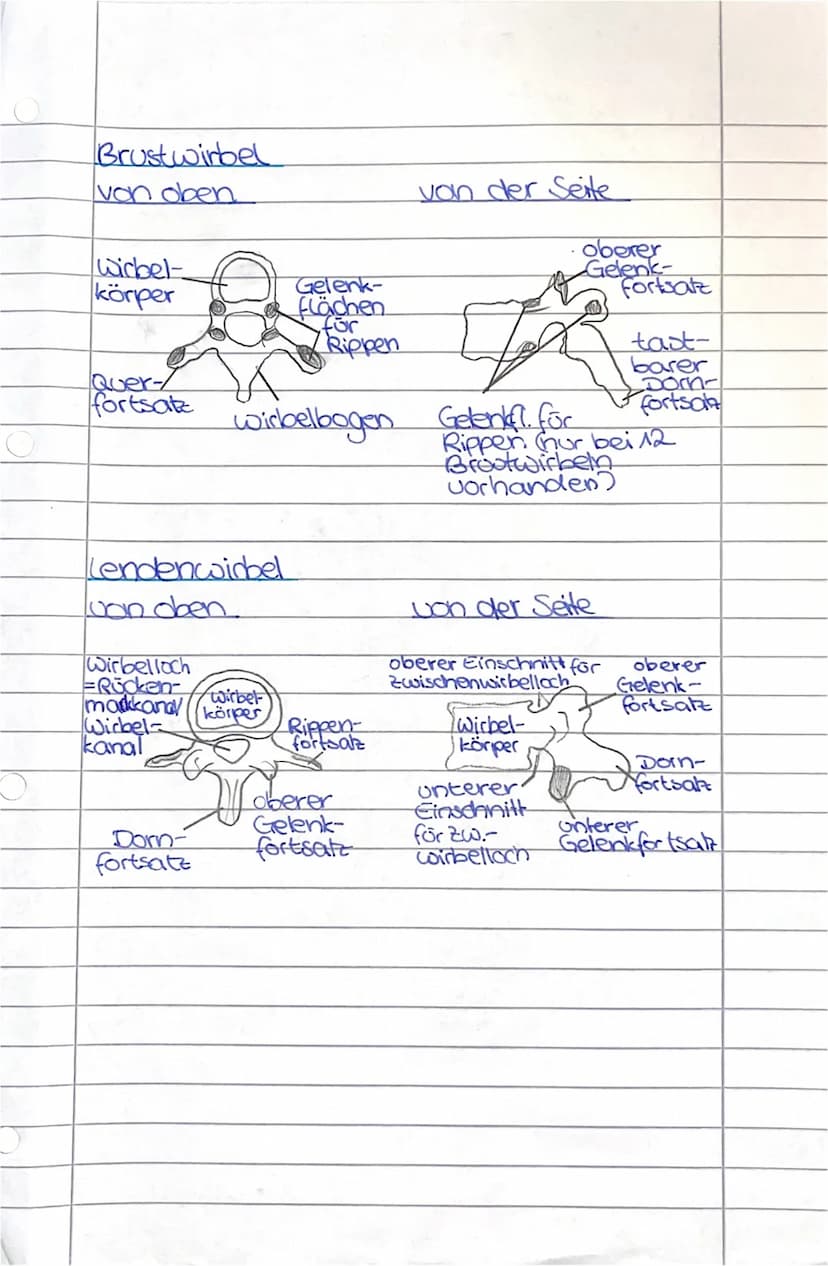 Brustwirbel
von oben
von der Seite
Wirbel-
körper
Gelenk-
flächen
für
Rippen
Quer-
fortsatz
Wirbelbogen
oberer
Gelenk-
fortsatz
tast-
barer
Dorn-
fortsatz
Gelenkfl. für
Rippen (nur bei 12
Brustwirbeln
vorhanden)
Lendenwirbel
von oben
von der Seite
Wirbelloch
=Rücken-
markkanal/
Wirbel-
kanal
Wirbel-
körper
Rippen-
fortsatz
oberer
Gelenk-
fortsatz
Dorn-
fortsatz
oberer Einschnitt für
Zwischenwirbelloch
oberer
Gelenk-
fortsatz
Wirbel-
körper
Dorn-
fortsatz
unterer
Einschnitt
für Zw.-
wirbelloch
unterer
Gelenkfortsatz